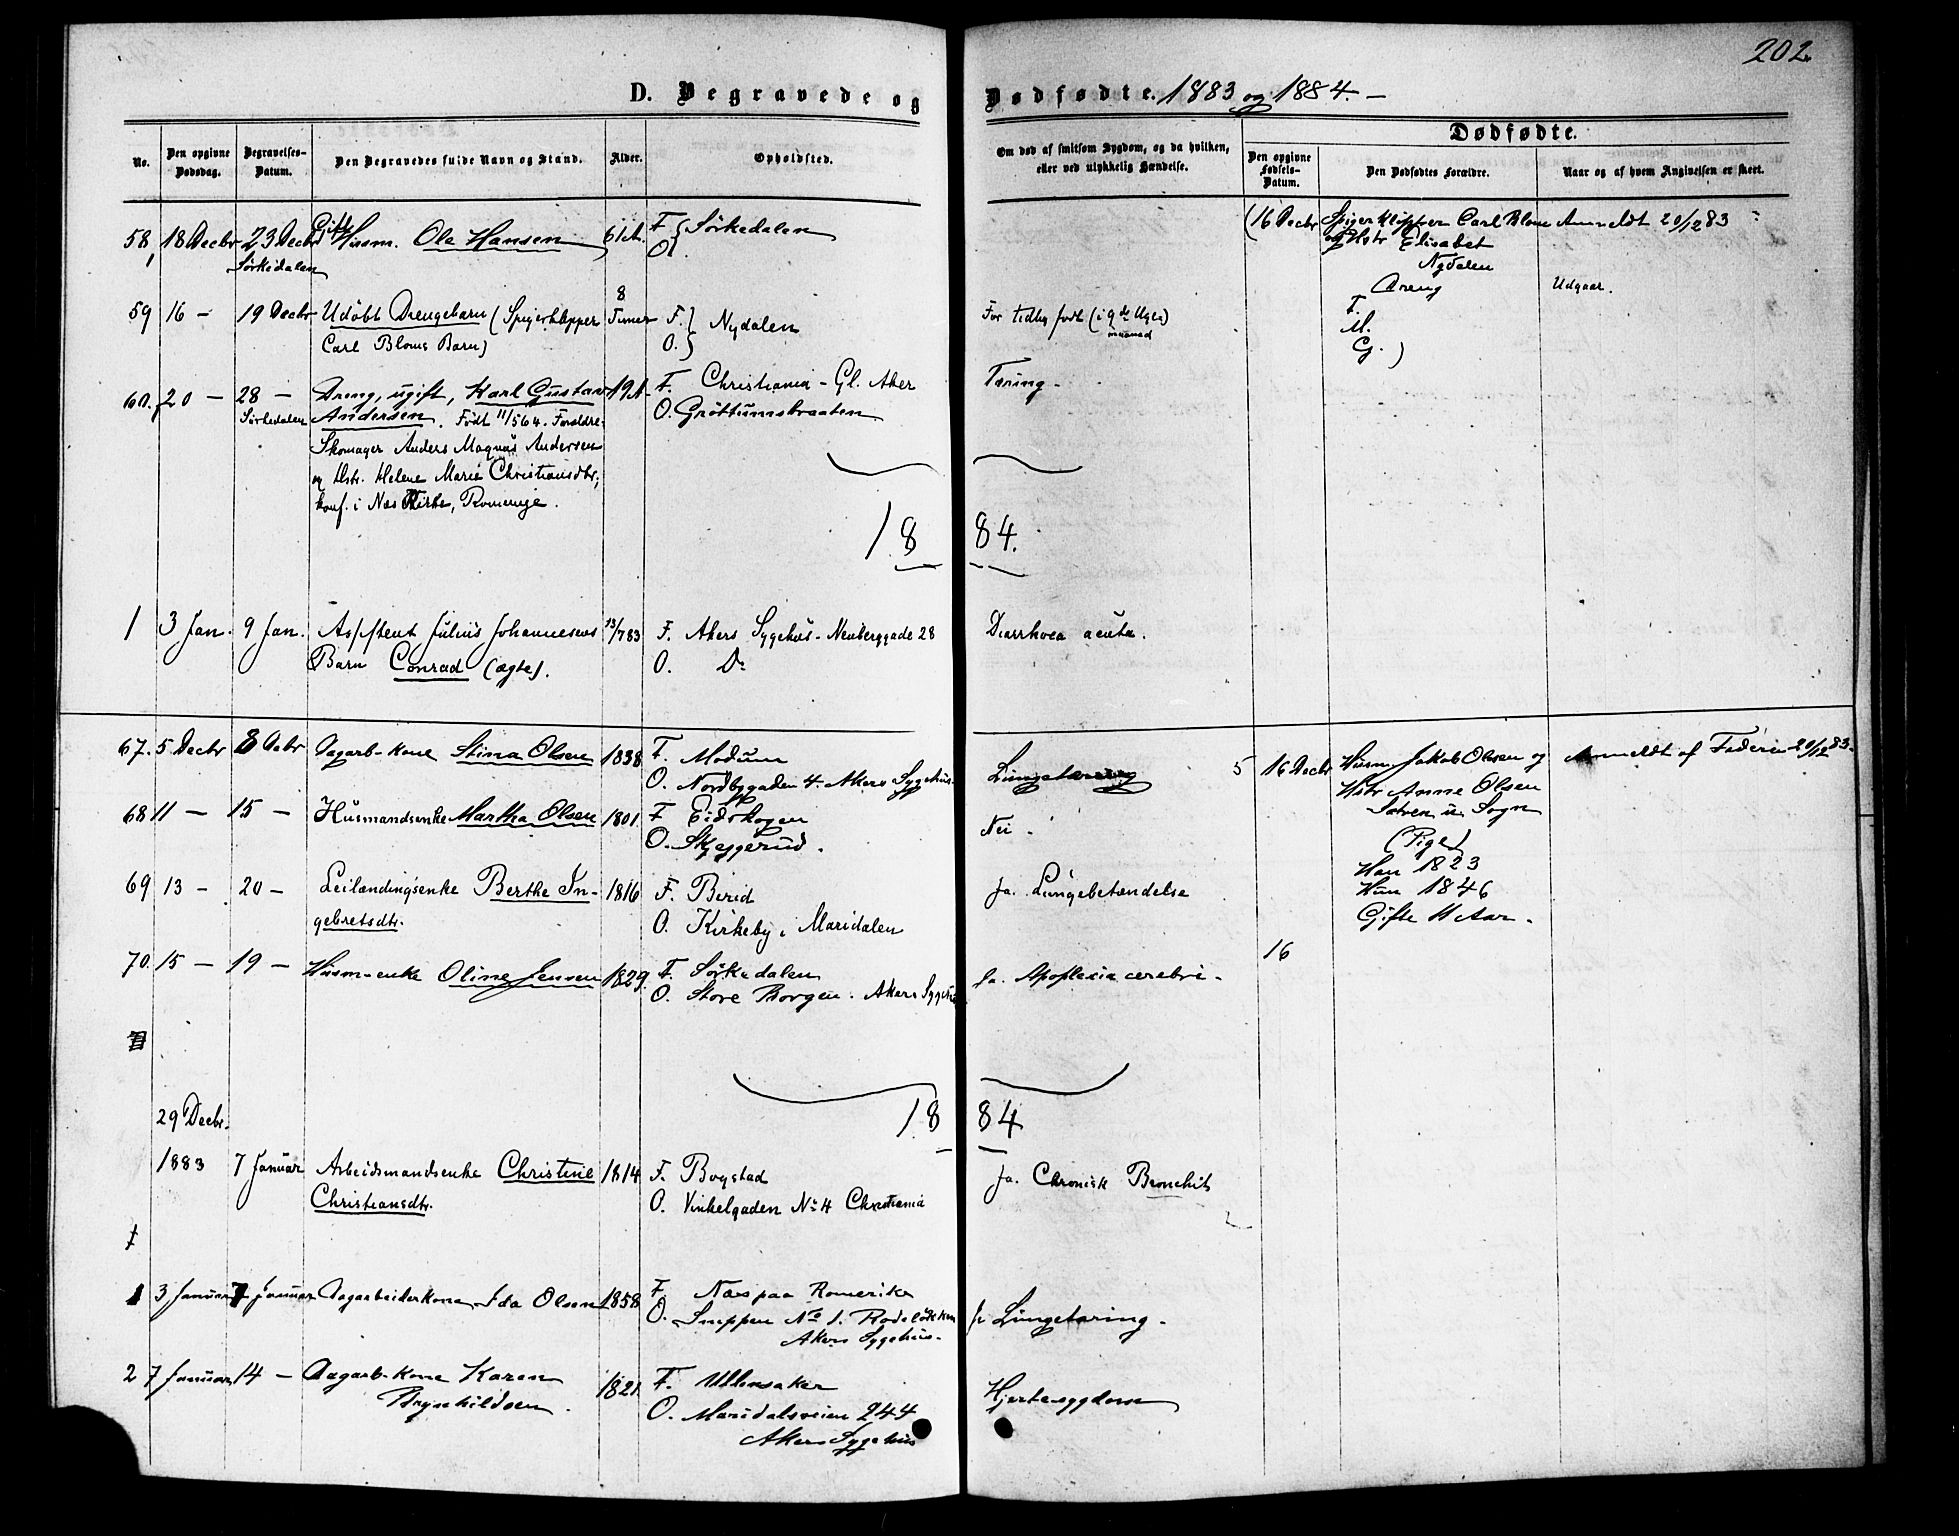 202
D. Begravede og Dødfødte. 1883 og 1884. –
No.
Den opgivne Dødsdag.
Begravelses-Datum.
Den Begravedes fulde Navn og Stand.
Alder.
Opholdssted.
Om død af smitsom Sygdom, og da hvilken, eller ved ulykkelig Hændelse.
Dødfødte.
Den opgivne Fødsels-Datum.
Den Dødfødtes Forældre.
Naar og af hvem Angivelsen er skeet.
58, 18 Decbr 23 Decbr Gift Husm. Ole Hansen 61 A. F. } Sörkedalen
Sörkedalen O.
(16 Decbr Spigerklipper Carl Blom Anmeldt 20/12 83
og Hstr Elisabet
Nydalen
Dreng Udgaar.
F.
M.
G. )
59 16 – 19 Decbr Udöbt Drengebarn (Spigerklipper 8 Timer F. } Nydalen For tidlig født (i 9de Uge)
Carl Bloms Barn) O. } maaned
60. 20 – 28 – Dreng, ugift, Karl Gustav 19 A. F. Christiania - Gl. Aker Tæring –
Sörkedalen Andersen. Født 11/5 64. Forældre: O. Gröttumsbraaten
Skomager Anders Magnus Andersen
og Hstr. Helene Marie Christiansdtr;
konf. i Næs Kirke, Romerige.
1884.
1 3 Jan. 9 Jan. Assistent Julius Johannesens 13/7 83 F. Akers Sygehus - Neuberggade 28 Diarrhoea acuta.
Barn Conrad (ægte). O. Do
67. 5 Decbr 8 Debr Dagarb-kone Stina Olsen 1838 F. Modum
O. Nordbygaden 4. Akers Sygehus. Lungetæring
5 16 Decbr Husm. Jakob Olsen og Anmeldt af Faderen 20/12 83.
Hstr Anne Olsen
u. Sogn
(Pige)
Han 1823
Hun 1846
Gifte 11 Aar.
68 11 – 15 – Husmandsenke Martha Olsen 1801. F Eidskogen Nei.
O. Skjeggerud.
69 13 – 20 – Leilændingsenke Berthe In- 1816 F. Berid Ja. Lungebetændelse
gebretsdtr. O. Kirkeby i Maridalen
16
70. 15 – 19 – Husm-enke Oline Jensen 1829. F. Sörkedalen Ja. Apoplexia cerebri –
O. Store Borgen. Akers Sygehus
1884
29 Decbr.
1883 7 Januar Arbeidsmandsenke Christine 1814 F. Bogstad Ja. Chronisk Bronchit
Christiansdtr. O. Vinkelgaden No 4 Christiania
1 3 Januar 7 Januar Dagarbeiderkone Ida Olsen 1858 F. Næs paa Romerike
O. Snippen No 1. Rodelökken Ja Lungetæring –
Akers Sygehus –
2 7 Januar 14 – Dagarb-kone Karen 1821. F. Ullensaker Hjertesygdom
Brynhildsen. O. Maridalsveien 244
Akers Sygehus